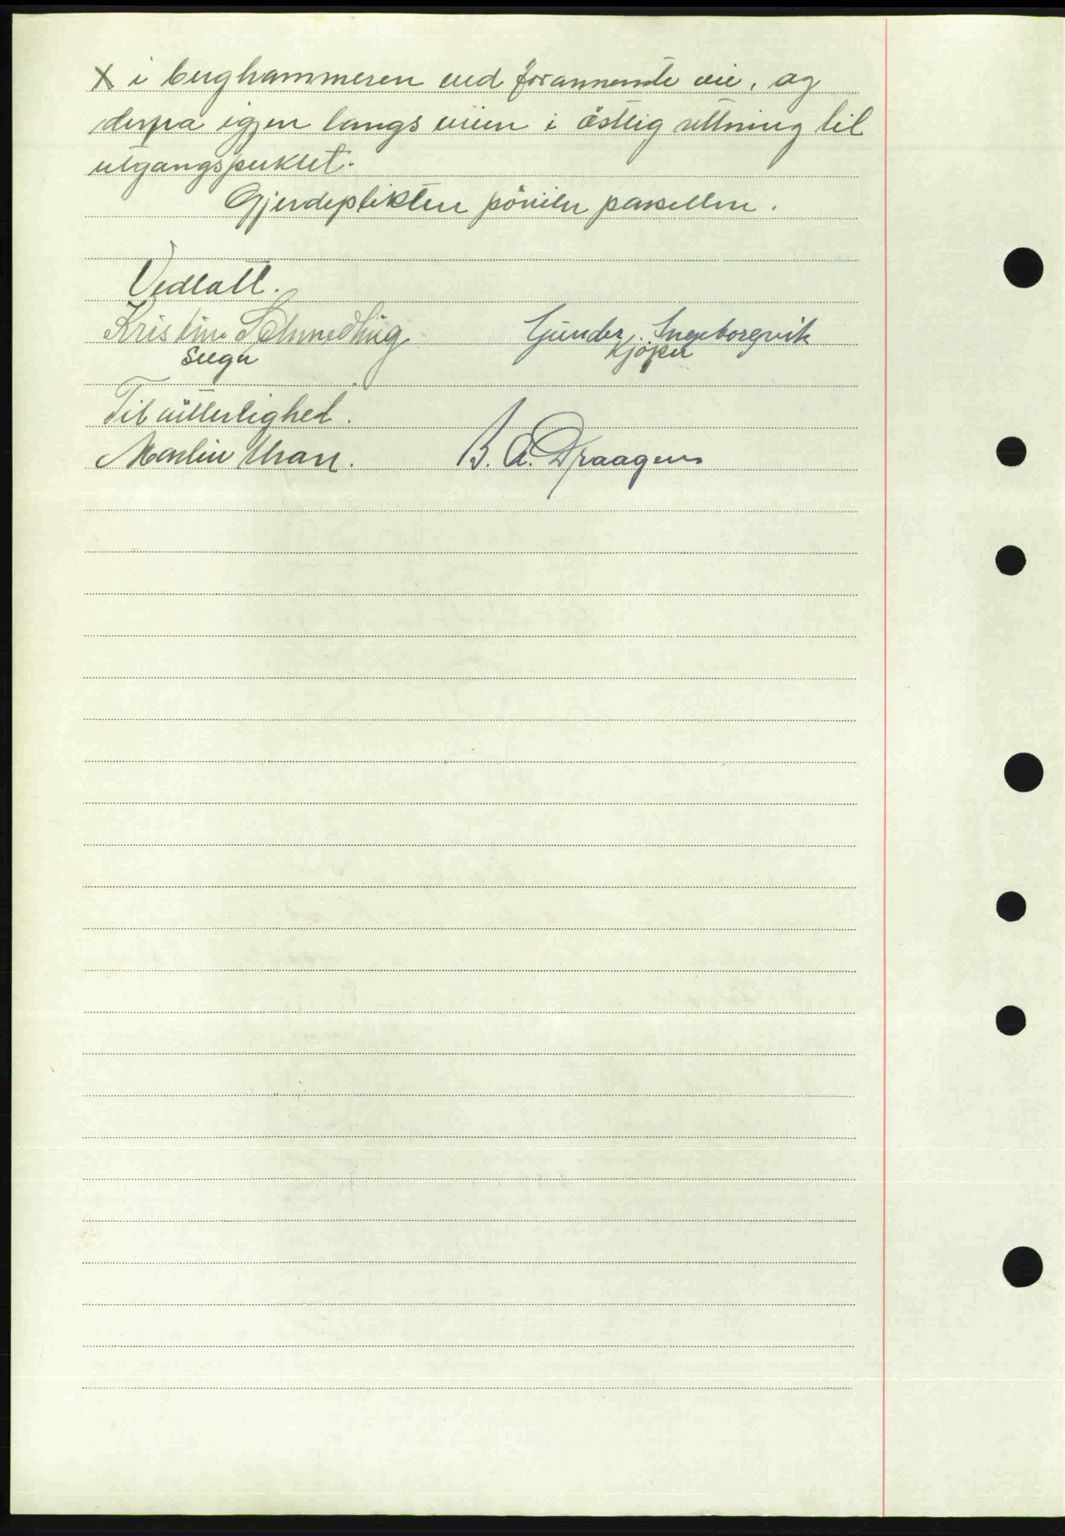 X i berghammeren ved forannevnte vei, og
derpå igjen langs veien i östlig rettning til
utgangspuktet.
Gjerdeplikten påviler parsellen.
Vedtatt.
Kristine Schmedling
Selger
Gunder Ingeborgvik
Kjöper
Til vitterlighed.
Martin
B. A. Draagens